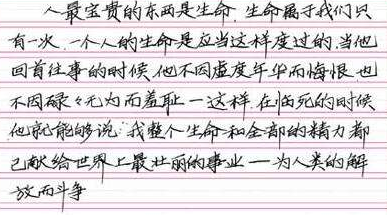 人最宝贵的东西是生命，生命属于我们只
有一次，一个人的生命是应当这样度过的，当他
回首往事的时候，他不因虚度年华而悔恨，也
不因碌々无为而羞耻一这样，在临死的时候
他就能够说：我整个生命和全部的精力都
已献给世界上最壮丽的事业一为人类的解
放而斗争